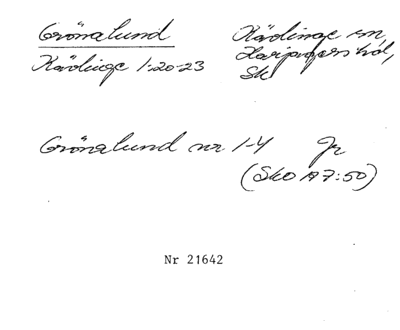 Grönalund
Kävlinge 1:20-23
Kävlinge sn
Harjagers hd,
Sk
Grönalund nr 1-4 Jr
(SkO A7:50)
Nr 21642